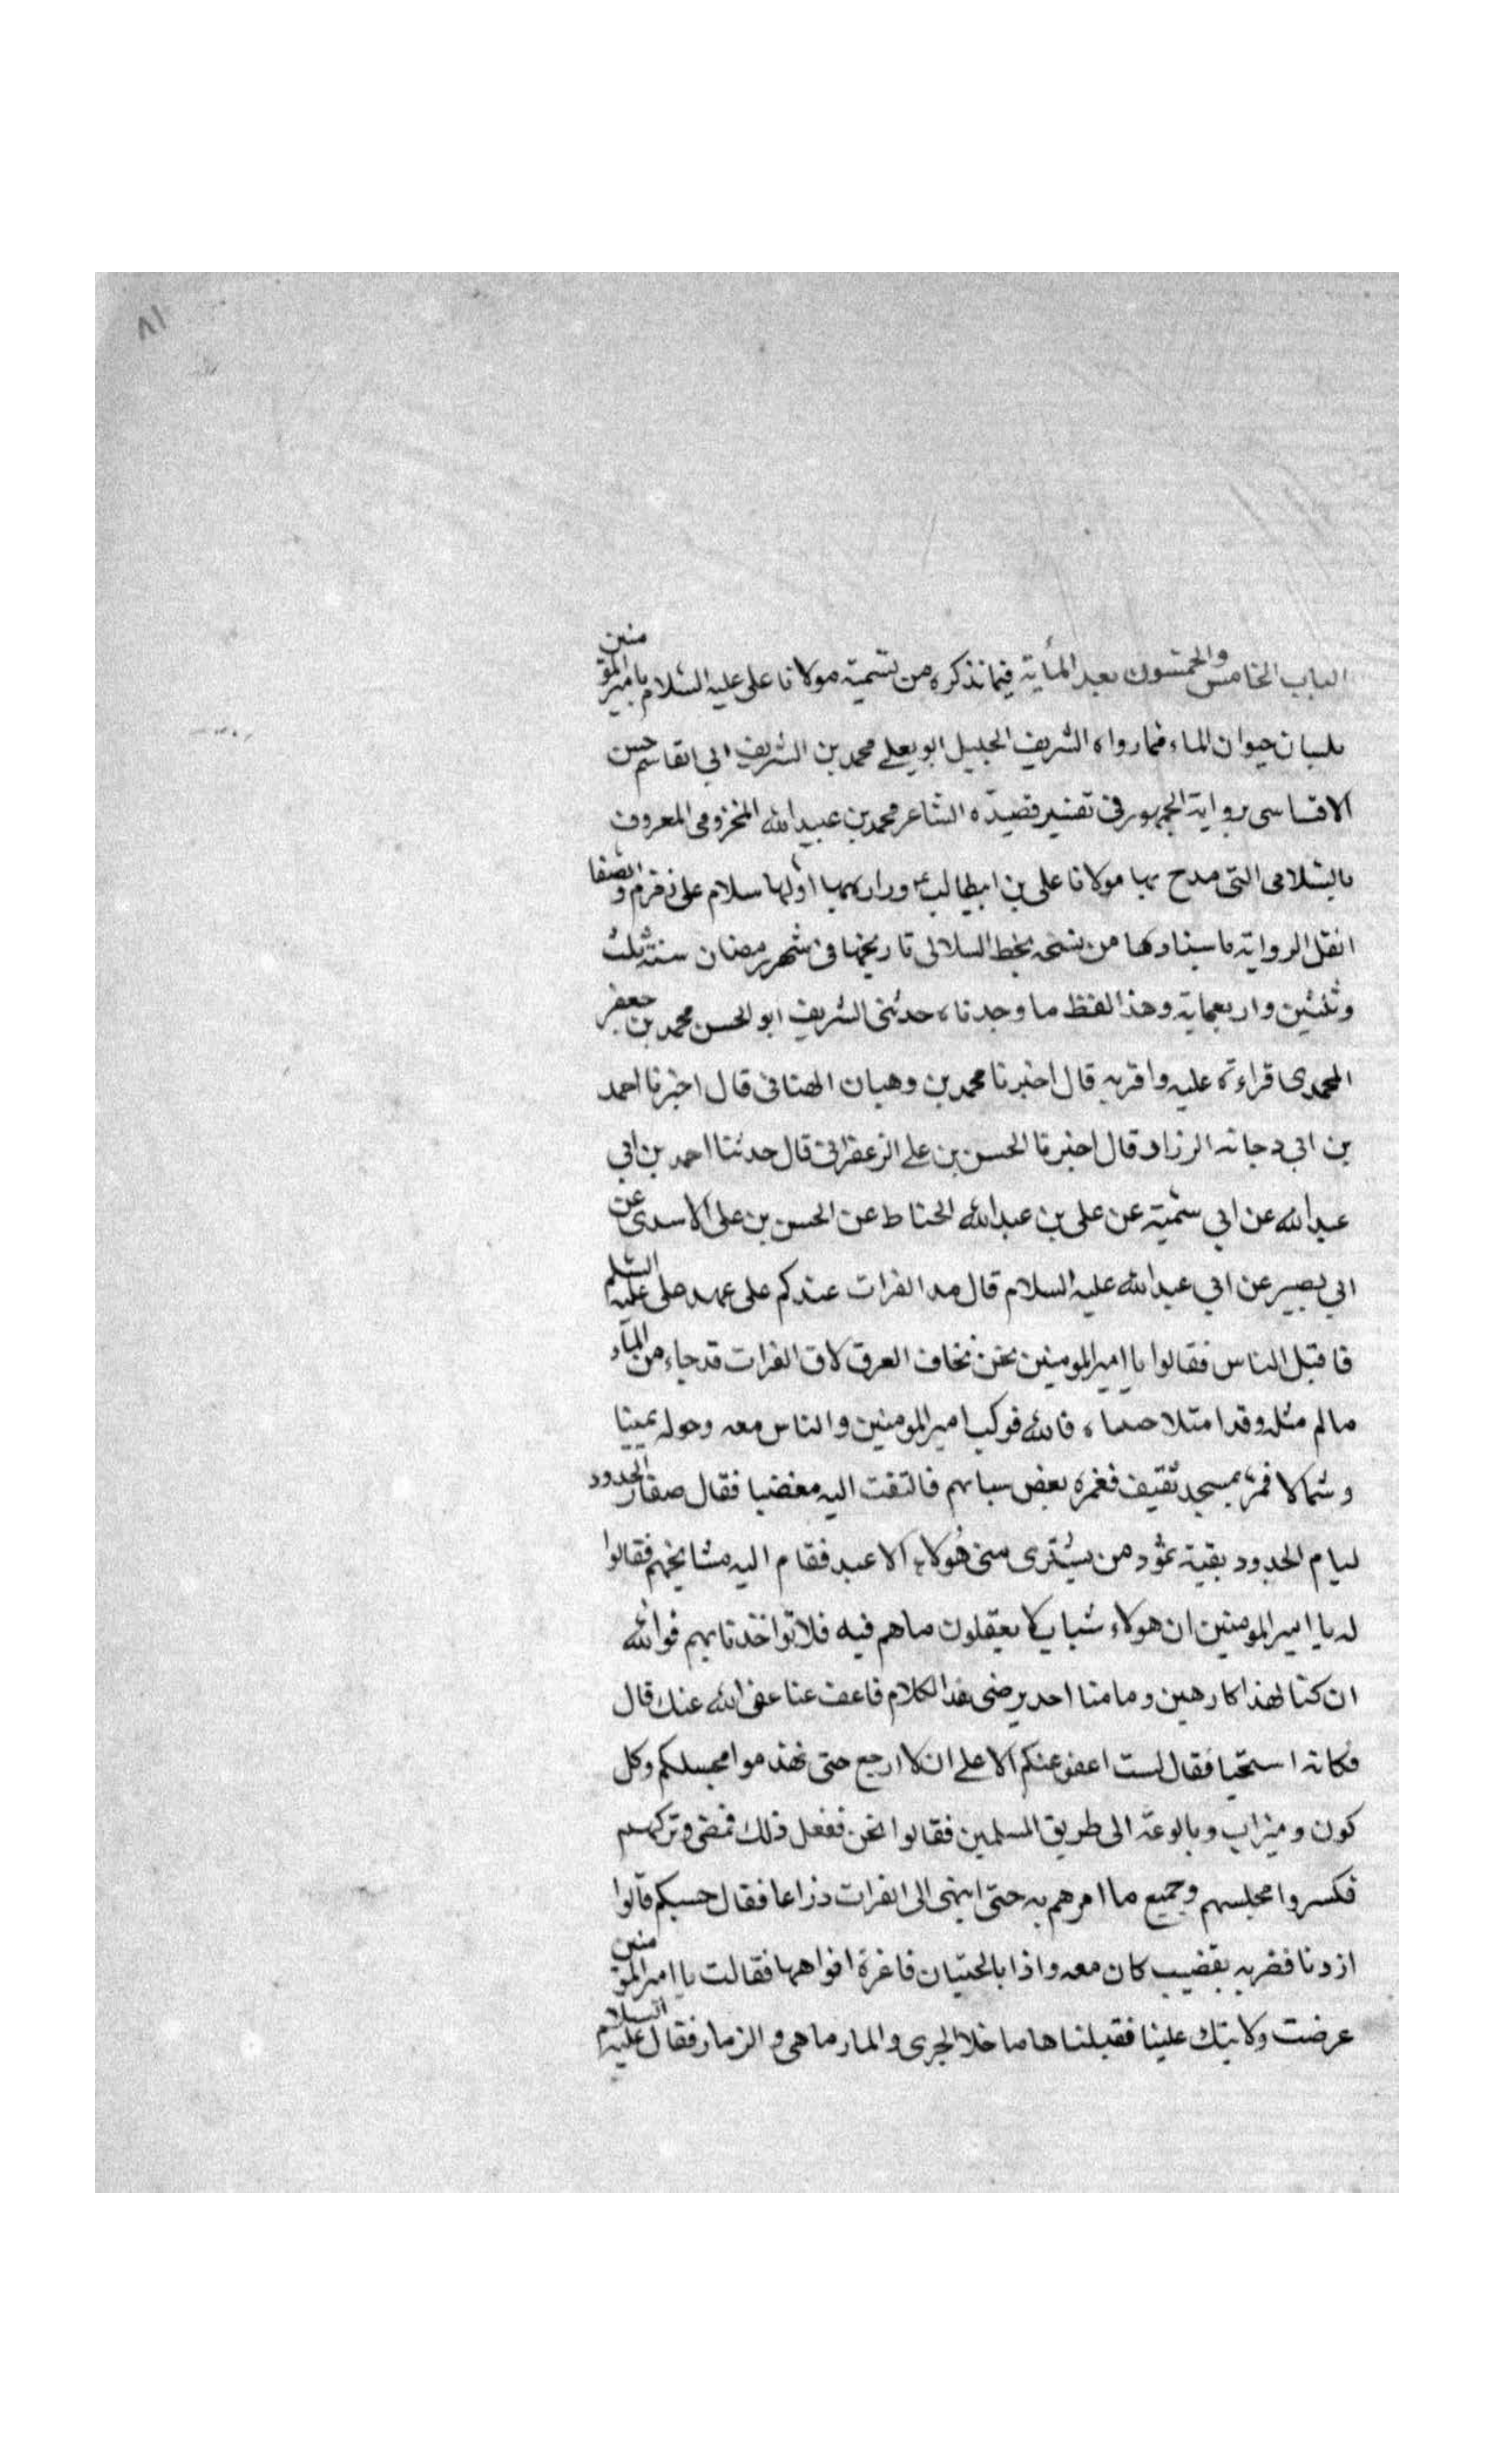 ٨١
الباب الخامس والخمسون بعد المأية فيما نذكره من تسمية مولانا على عليه السلام بامير المؤمنين
بلسان حيوان الماء فما رواه الشريف الجليل ابو يعلى محمد بن الشريف ابى القاسم حسن
الاقساسى برواية الجمهور فى تفسير قصيده الشاعر محمد بن عبيد الله المخزومى المعروف
بالسلامى التى مدح بها مولانا على بن ابيطالب ع وزاره بها اولها سلام على زمزم والصفا
انقل الرواية باسنادها من نسخه بخط السلالى تاريخها فى شهر رمضان سنة ثلث
وثلثين واربعماية وهذا لفظ ما وجدناه حدثنى الشريف ابو الحسن محمد بن جعفر
المحمدى قراءة عليه واقر به قال اخبرنا محمد بن وهبان الهنائى قال اخبرنا احمد
بن ابى دجانه الرزاد قال اخبرنا الحسن بن على الزعفرانى قال حدثنا احمد بن ابى
عبد الله عن ابى سمية عن على بن عبد الله الحناط عن الحسن بن على الاسدى عن
ابى بصير عن ابى عبد الله عليه السلام قال مد الفرات عندكم على عهد على عليه السلم
فاقبل الناس فقالوا يا امير المومنين نحن نخاف العرق لان الفرات قد جاء من الماء
مالم مثله وقد امتلا فالله فركب امير المومنين والناس معه وحوله يمينا
وشمالا فمر بمسجد ثقيف فغمزه بعض سبابهم فالتفت اليه مغضبا فقال صغار الخدود
ليام الجدود بقية ثمود من يشترى منى هولاء الاعبد فقام اليه مشايخهم فقالوا
له يا امير المومنين ان هولاء شباب لا يعقلون ماهم فيه فلا تواخذنا بهم فوالله
ان كنا لهذا كارهين وما منا احد يرضى هذا الكلام فاعف عنا عفى الله عنك قال
فكانه استحيا فقال لست اعفو عنكم الا على ان لا ارجع حتى تهدموا مجسلكم وكل
كون وميزاب وبالوعة الى طريق المسلمين فقالوا نحن نفعل ذلك فمضى وتركهم
فكسروا مجلسهم وجميع ما امرهم به حتى انتهى الى الفرات ذراعا فقال حسبكم قالوا
ازدنا فضربه بقضيب كان معه واذا بالحيتان فاغرة افواهها فقالت يا امير المومنين
عرضت ولايتك علينا فقبلناها ما خلا الجرى والمارماهى والزمار فقال عليه السلام